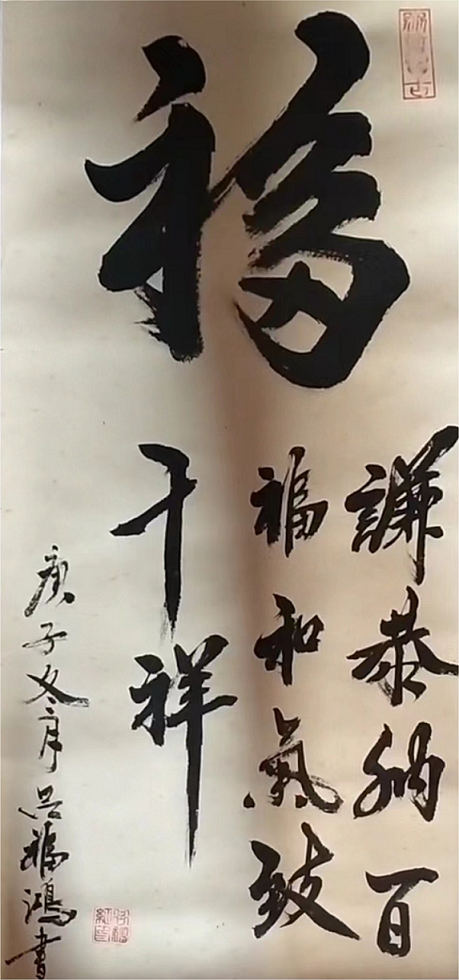 福
謙恭納百
福和氣致
千祥
庚子冬月吕福鴻書